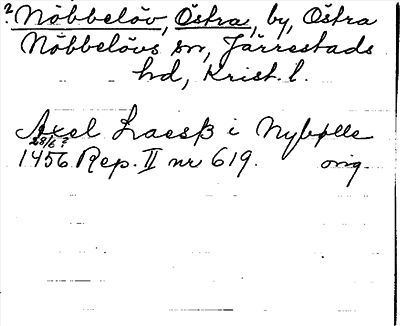 ? Nöbbelöv, Östra, by, Östra
Nöbbelövs sn, Järrestads
hd, Krist. l.
Axel Laesß i Nybølle
28/6 ?
1456 Rep. II nr 619. orig.